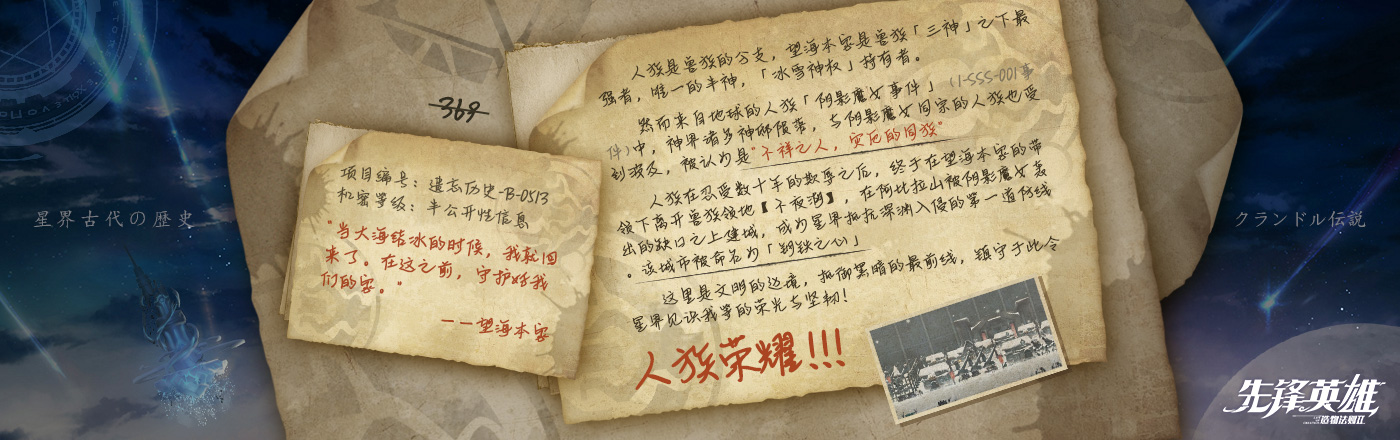 星界古代の歴史
369
项目编号：遗忘历史-B-0513
机密等级：半公开性信息
"当大海结冰的时候，我就回
来了。在这之前，守护好我
们的家。"
——望海本家
人族是兽族的分支，望海本家是兽族「三神」之下最
强者，唯一的半神，「冰雪神权」持有者。
然而来自地球的人族「阴影魔女事件」（1-SSS-001事
件）中，神界诸多神祇陨落，与阴影魔女同宗的人族也受
到波及，被认为是"不祥之人，灾厄的同族"
人族在忍受数十年的欺辱之后，终于在望海本家的带
领下离开兽族领地【不夜湖】，在阿比拉山被阴影魔女轰
出的缺口之上建城，成为星界抵抗深渊入侵的第一道防线
。该城市被命名为「钢铁之心」
这里是文明的边境，抵御黑暗的最前线，镇守于此令
星界见识我等的荣光与坚韧！
人族荣耀!!!
クランドル伝説
先锋英雄
造物法则II